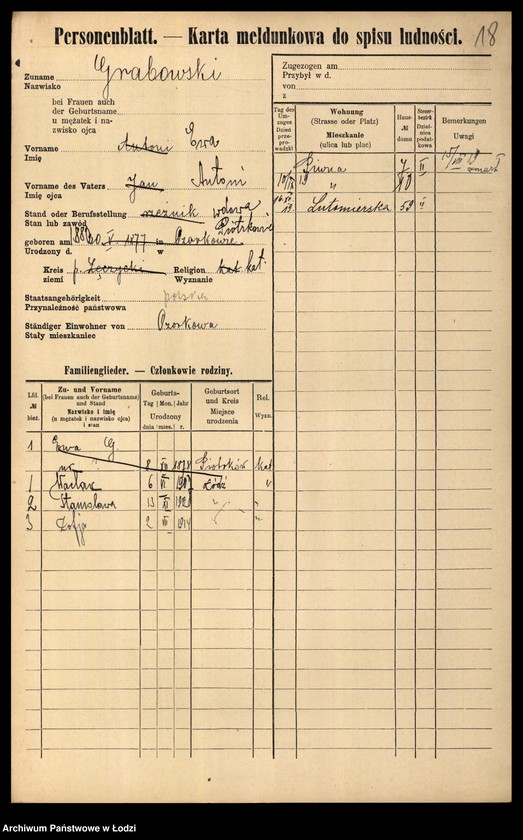 Personenblatt. — Karta meldunkowa do spisu ludności. 18
Zuname Grabowski
Nazwisko
bei Frauen auch
der Geburtsname
u mężatek i na-
zwisko ojca
Vorname Antoni Ewa
Imię
Vorname des Vaters Jan Antoni
Imię ojca
Stand oder Berufsstellung rzeźnik wdowa
Stan lub zawód Piotrkowie
geboren am 30 V 1877 in Ozorkowie
Urodzony d. w
Kreis p. Łęczycki Religion kat. kat.
ziemi Wyznanie
Staatsangehörigkeit polska
Przynależność państwowa
Ständiger Einwohner von Ozorkowa
Stały mieszkaniec
Zugezogen am
Przybył w d.
von
z
Tag des Um-zuges Dzień prze-prowadzki
Wohnung
(Strasse oder Platz)
Mieszkanie
(ulica lub plac)
Haus- № domu
Steuer-bezirk Dzielnica podat-kowa
Bemerkungen
Uwagi
Piwna 7 II
19 " 10
Lutomierska 53 II
zmarł
Familienglieder. — Członkowie rodziny.
Lfd. № bież.
Zu- und Vorname
(bei Frauen auch der Geburtsname)
und Stand
Nazwisko i imię
(u mężatek i nazwisko ojca)
i stan
Geburts-
Tag Mon. Jahr
Urodzony
dnia mies. r.
Geburtsort
und Kreis
Miejsce
urodzenia
Rel.
Wyzn.
1 Ewa G.
8 XII 1878 Piotrków kat
1 Wacław 6 VI 1907 Łódź "
2 Stanisława 13 XI "
3 Zofja 2 1914 "
Archiwum Państwowe w Łodzi